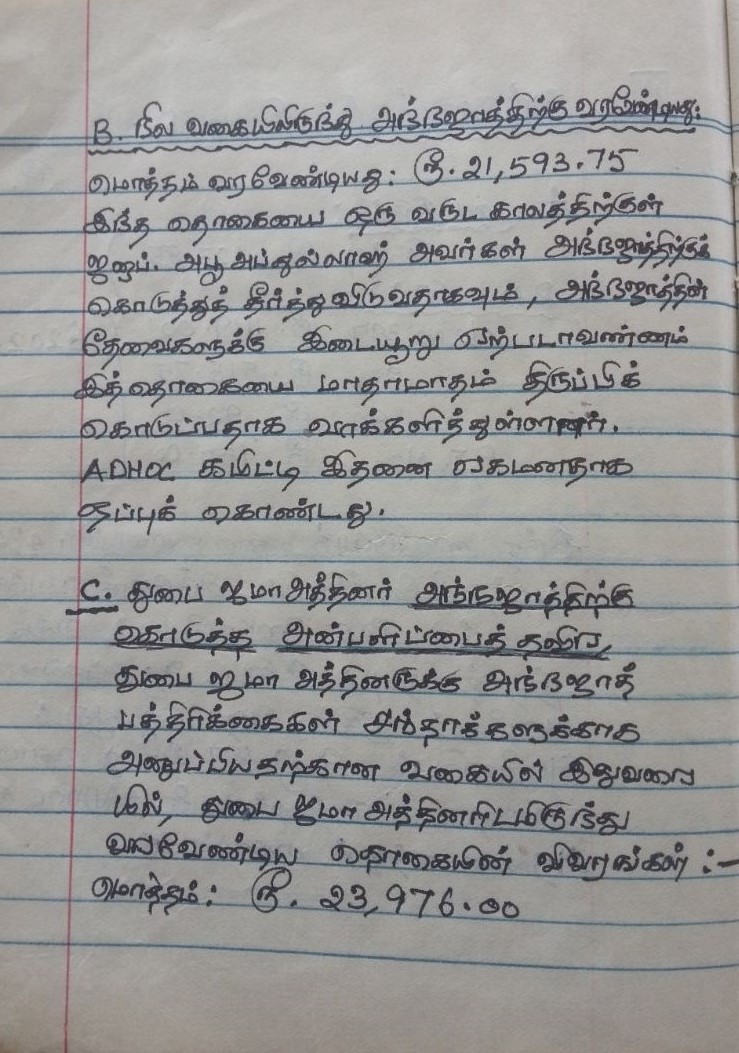 B. நில வகையிலிருந்து அந்நஜாத்திற்கு வரவேண்டியது:
மொத்தம் வரவேண்டியது: ரூ. 21,593.75
இந்த தொகையை ஒரு வருட காலத்திற்குள்
ஜனாப். அபூ அப்துல்லாஹ் அவர்கள் அந்நஜாத்திற்குக்
கொடுத்துத் தீர்த்து விடுவதாகவும், அந்நஜாத்தின்
தேவைகளுக்கு இடையூறு ஏற்படாவண்ணம்
இத்தொகையை மாதாமாதம் திருப்பிக்
கொடுப்பதாக வாக்களித்துள்ளார்.
ADHOC கமிட்டி இதனை ஏகமனதாக
ஒப்புக் கொண்டது.
C. துபை ஜமாஅத்தினர் அந்நஜாத்திற்கு
கொடுத்த அன்பளிப்பைத் தவிர,
துபை ஜமா அத்தினருக்கு அந்நஜாத்
பத்திரிக்கைகள் சந்தாக்களுக்காக
அனுப்பியதற்கான வகையில் இதுவரை
யில், துபை ஜமா அத்தினரிடமிருந்து
வரவேண்டிய தொகையின் விவரங்கள் :-
மொத்தம்: ரூ. 23,976.00